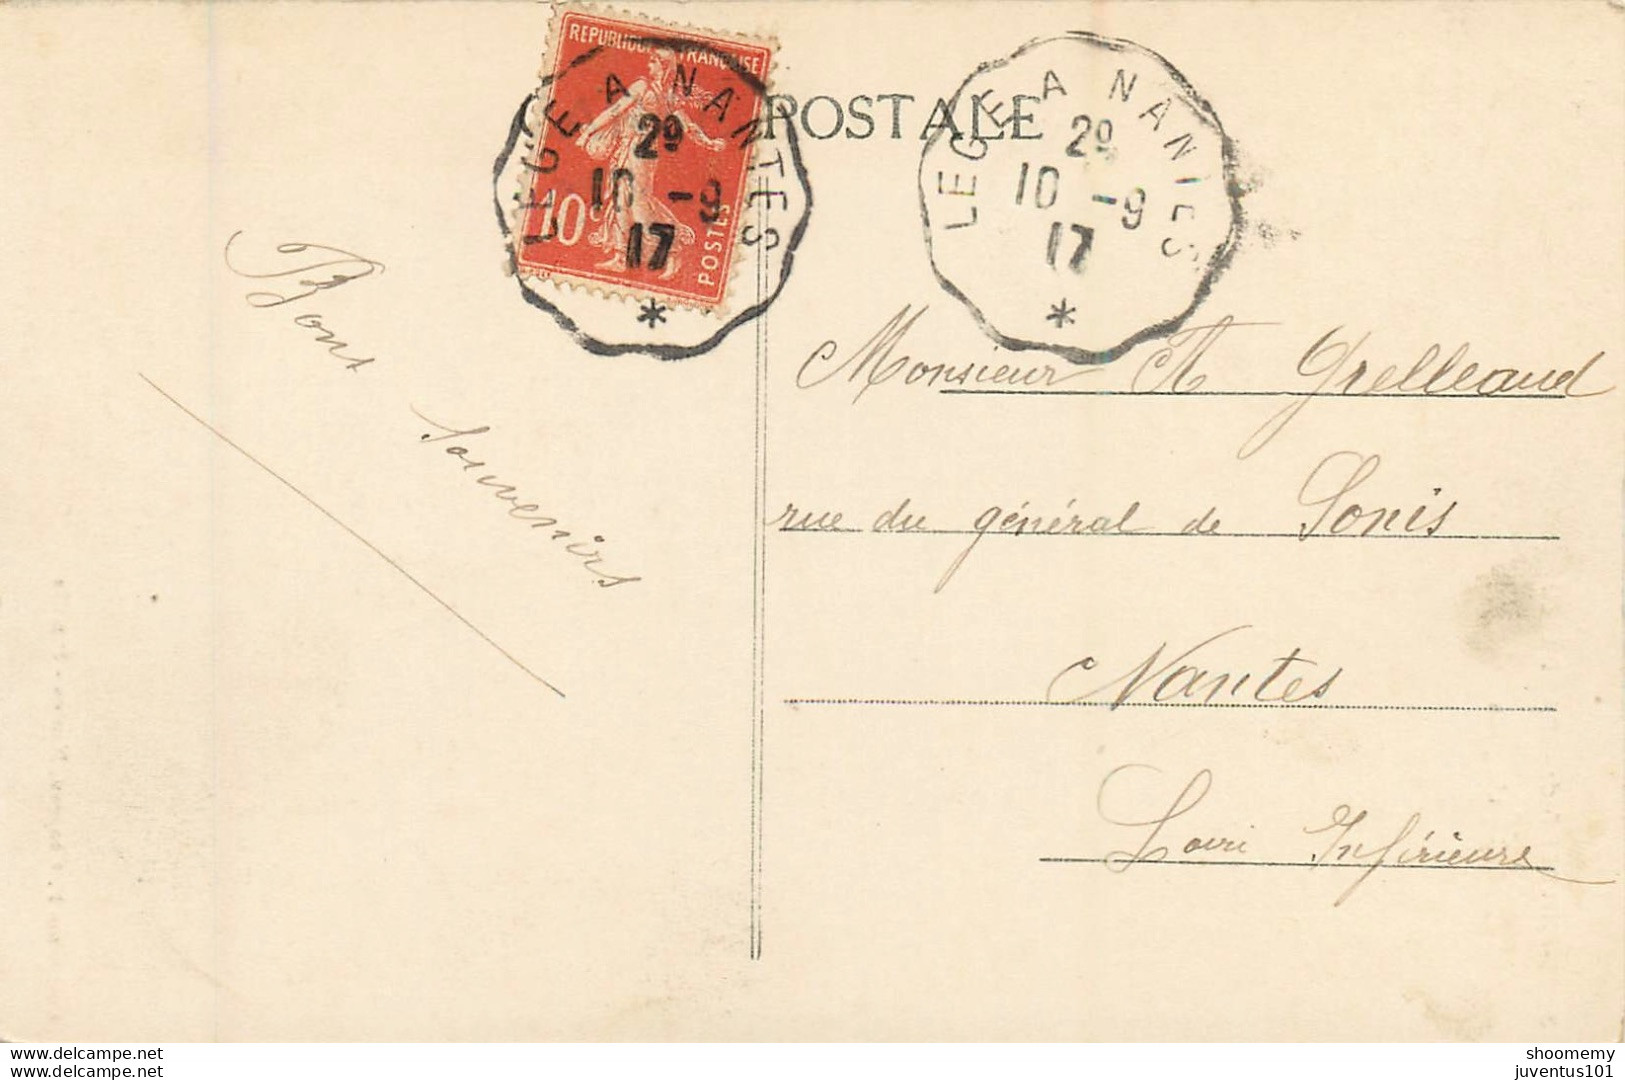 REPUBLIQUE FRANÇAISE
10c
POSTES
LEGE A NANTES
29
10 -9
17
*
POSTALE
LEGE A NANTES
29
10 -9
17
*
Bons
souvenirs
Monsieur A Grelleaud
rue du général de Sonis
Nantes
Loire Inférieure
www.delcampe.net
www.delcampe.net
shoomemy
juventus101